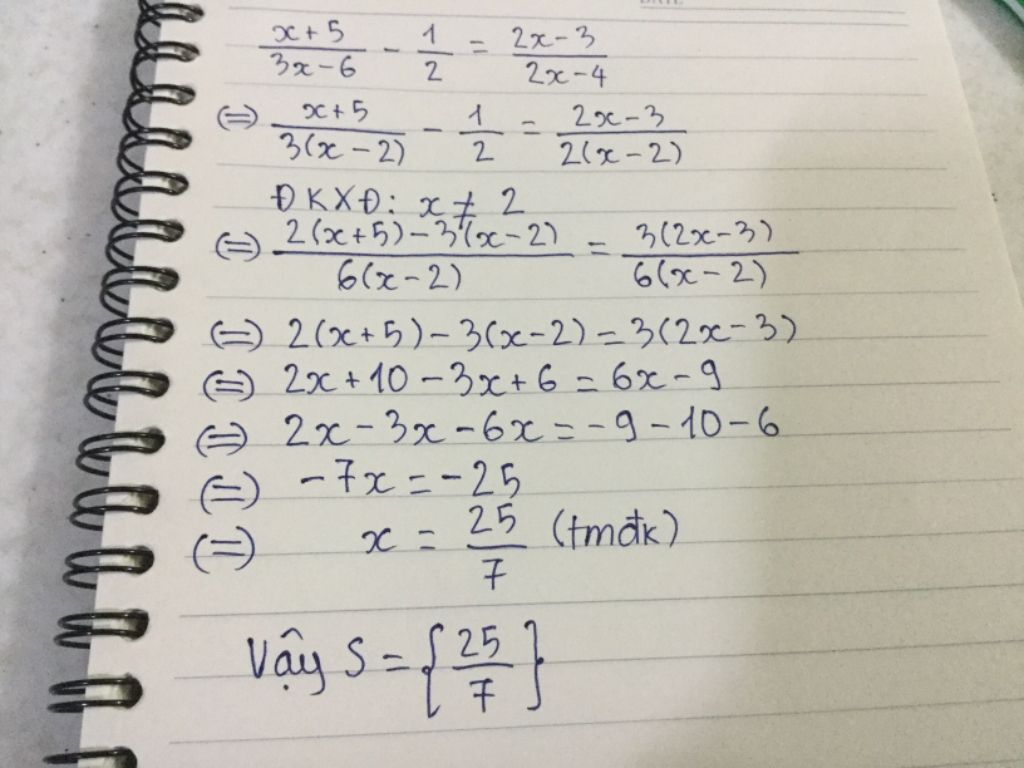 x+5/3x-6 - 1/2 = 2x-3/2x-4
(=) x+5/3(x-2) - 1/2 = 2x-3/2(x-2)
ĐKXĐ: x ≠ 2
(=) 2(x+5)-3(x-2)/6(x-2) = 3(2x-3)/6(x-2)
(=) 2(x+5)-3(x-2)=3(2x-3)
(=) 2x+10-3x+6=6x-9
(=) 2x-3x-6x=-9-10-6
(=) -7x=-25
(=) x = 25/7 (tmđk)
Vậy S = {25/7}